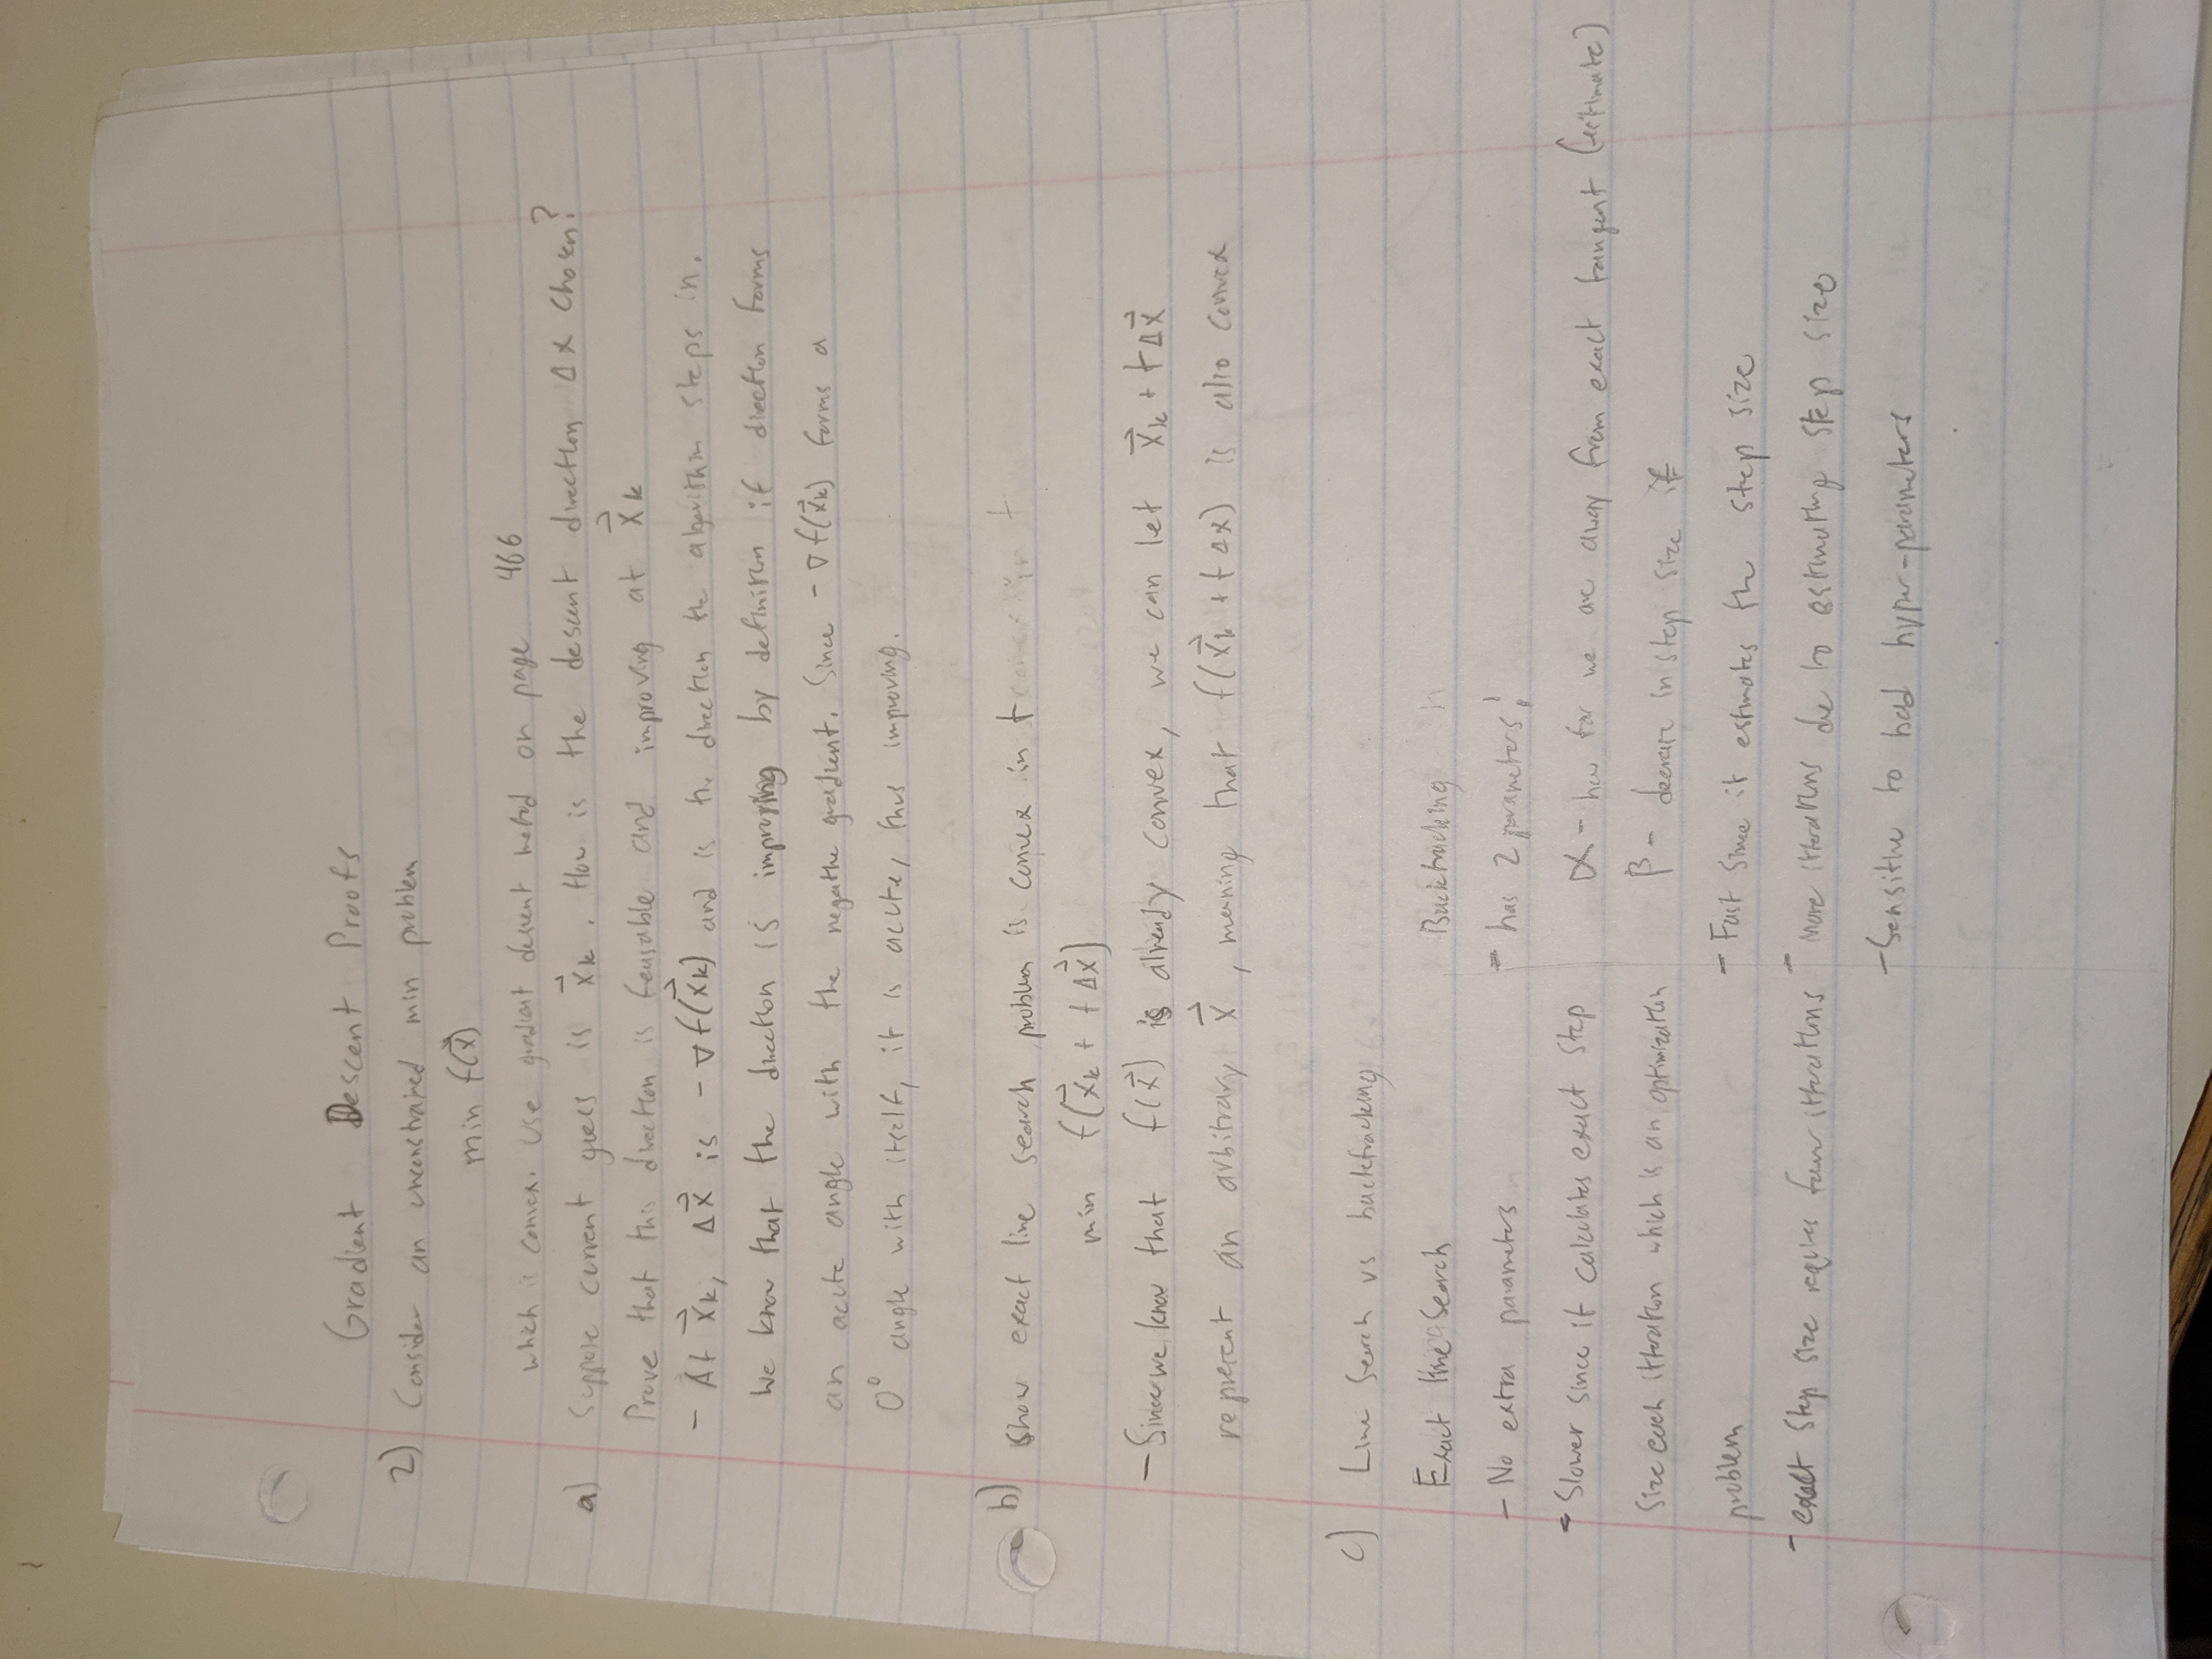 Gradient Descent Proofs
2) Consider an unconstrained min problem
min f(x⃗)
which is convex. Use gradient descent method on page 466
a) Suppose current guess is x⃗k. How is the descent direction Δx chosen?
Prove that this direction is feasable and improving at x⃗k
- At x⃗k, Δx⃗ is -∇f(x⃗k) and is the direction the algorithm steps in.
We know that the direction is improving by definition if direction forms
an acute angle with the negative gradient. Since -∇f(x⃗k) forms a
0° angle with itself, it is acute, thus improving.
b) Show exact line search problem is convex in t
min f(x⃗k + tΔx⃗)
- Since we know that f(x⃗) is already convex, we can let x⃗k + tΔx⃗
represent an arbitrary x⃗, meaning that f(x⃗k + tΔx) is also convex
c) Line Search vs backtracking
Exact line Search Backtracking
- No extra parameters - has 2 parameters!
- Slower since it calculates exact step α - how far we are away from exact tangent (estimate)
size each itteration which is an optimization β - decrease in step size if
problem - Fast since it estimates the step size
- exact step size requires fewer itterations - more itterations due to estimating step size
- Sensitive to bad hyper-parameters